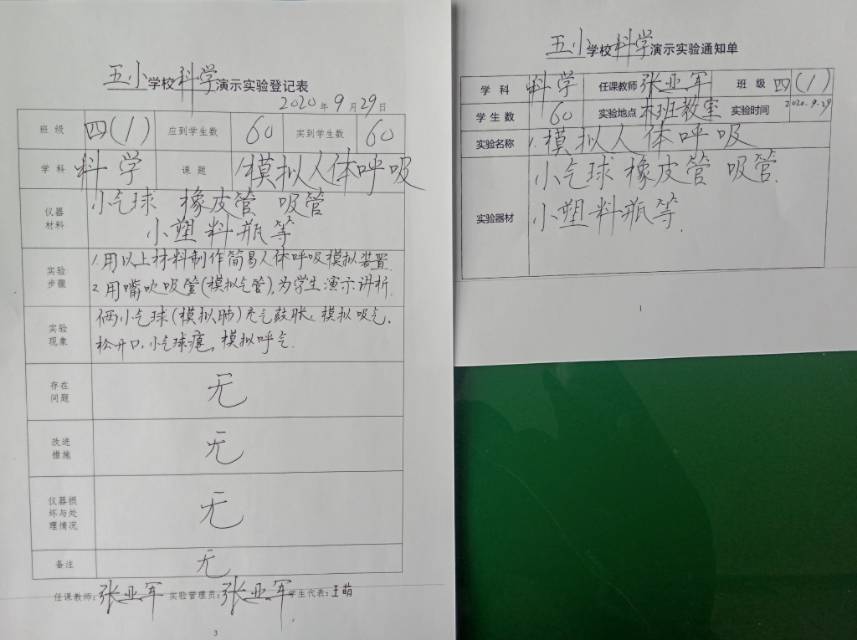 五小学校科学演示实验登记表
2020年9月29日
班级 四(1) 应到学生数 60 实到学生数 60
学科 科学 课题 1模拟人体呼吸
仪器材料 小气球 橡皮管 吸管
小塑料瓶等
实验步骤 1.用以上材料制作简易人体呼吸模拟装置.
2.用嘴吹吸管(模拟气管),为学生演示讲析.
实验现象 俩小气球(模拟肺)充气鼓胀,模拟吸气,
松开口,小气球瘪,模拟呼气.
存在问题 无
改进措施 无
仪器损坏与处理情况 无
备注 无
任课教师:张亚军 实验管理员:张亚军 学生代表:王萌
3
五小学校科学演示实验通知单
学科 科学 任课教师 张亚军 班级 四(1)
学生数 60 实验地点 本班教室 实验时间 2020.9.29
实验名称 1.模拟人体呼吸
实验器材 小气球 橡皮管 吸管.
小塑料瓶等.
1